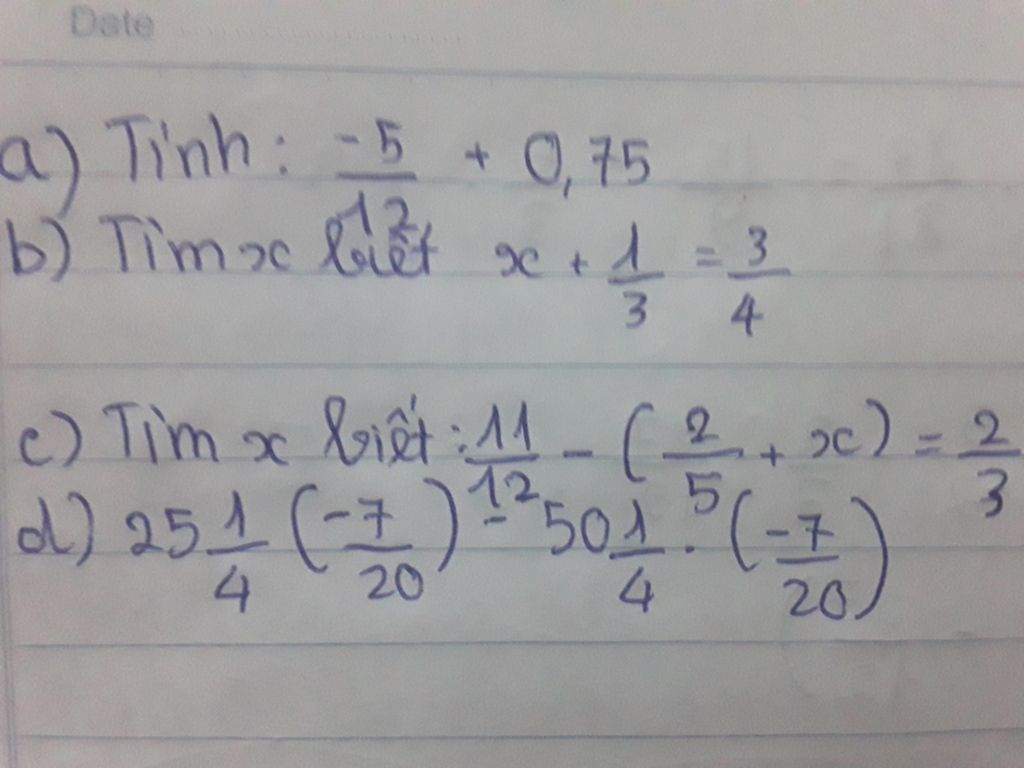 Date
a) Tính: -5/12 + 0,75
b) Tìm x biết x + 1/3 = 3/4
c) Tìm x biết: 11/12 - (2/5 + x) = 2/3
d) 25 1/4 (-7/20) - 50 1/4 . (-7/20)